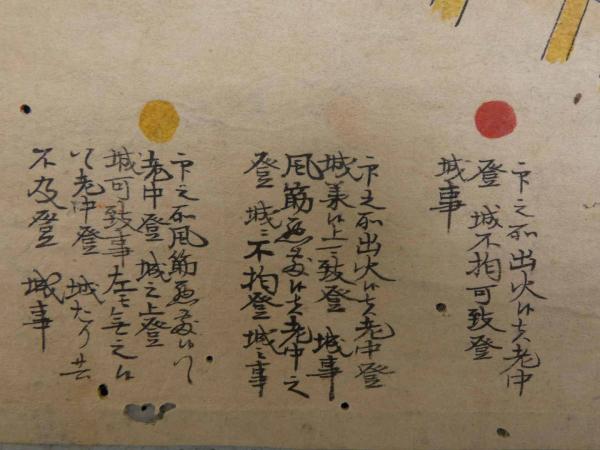 印之所出火候者老中
登 城不拘可致登
城事
印之所出火候者老中登
城候上ニ致登 城事
風筋悪敷候者老中之
登 城ニ不拘登 城之事
印之所風筋悪敷候ハヽ
老中登 城之上登
城可致事左も無之候
ハヽ老中登 城たり共
不及登 城事